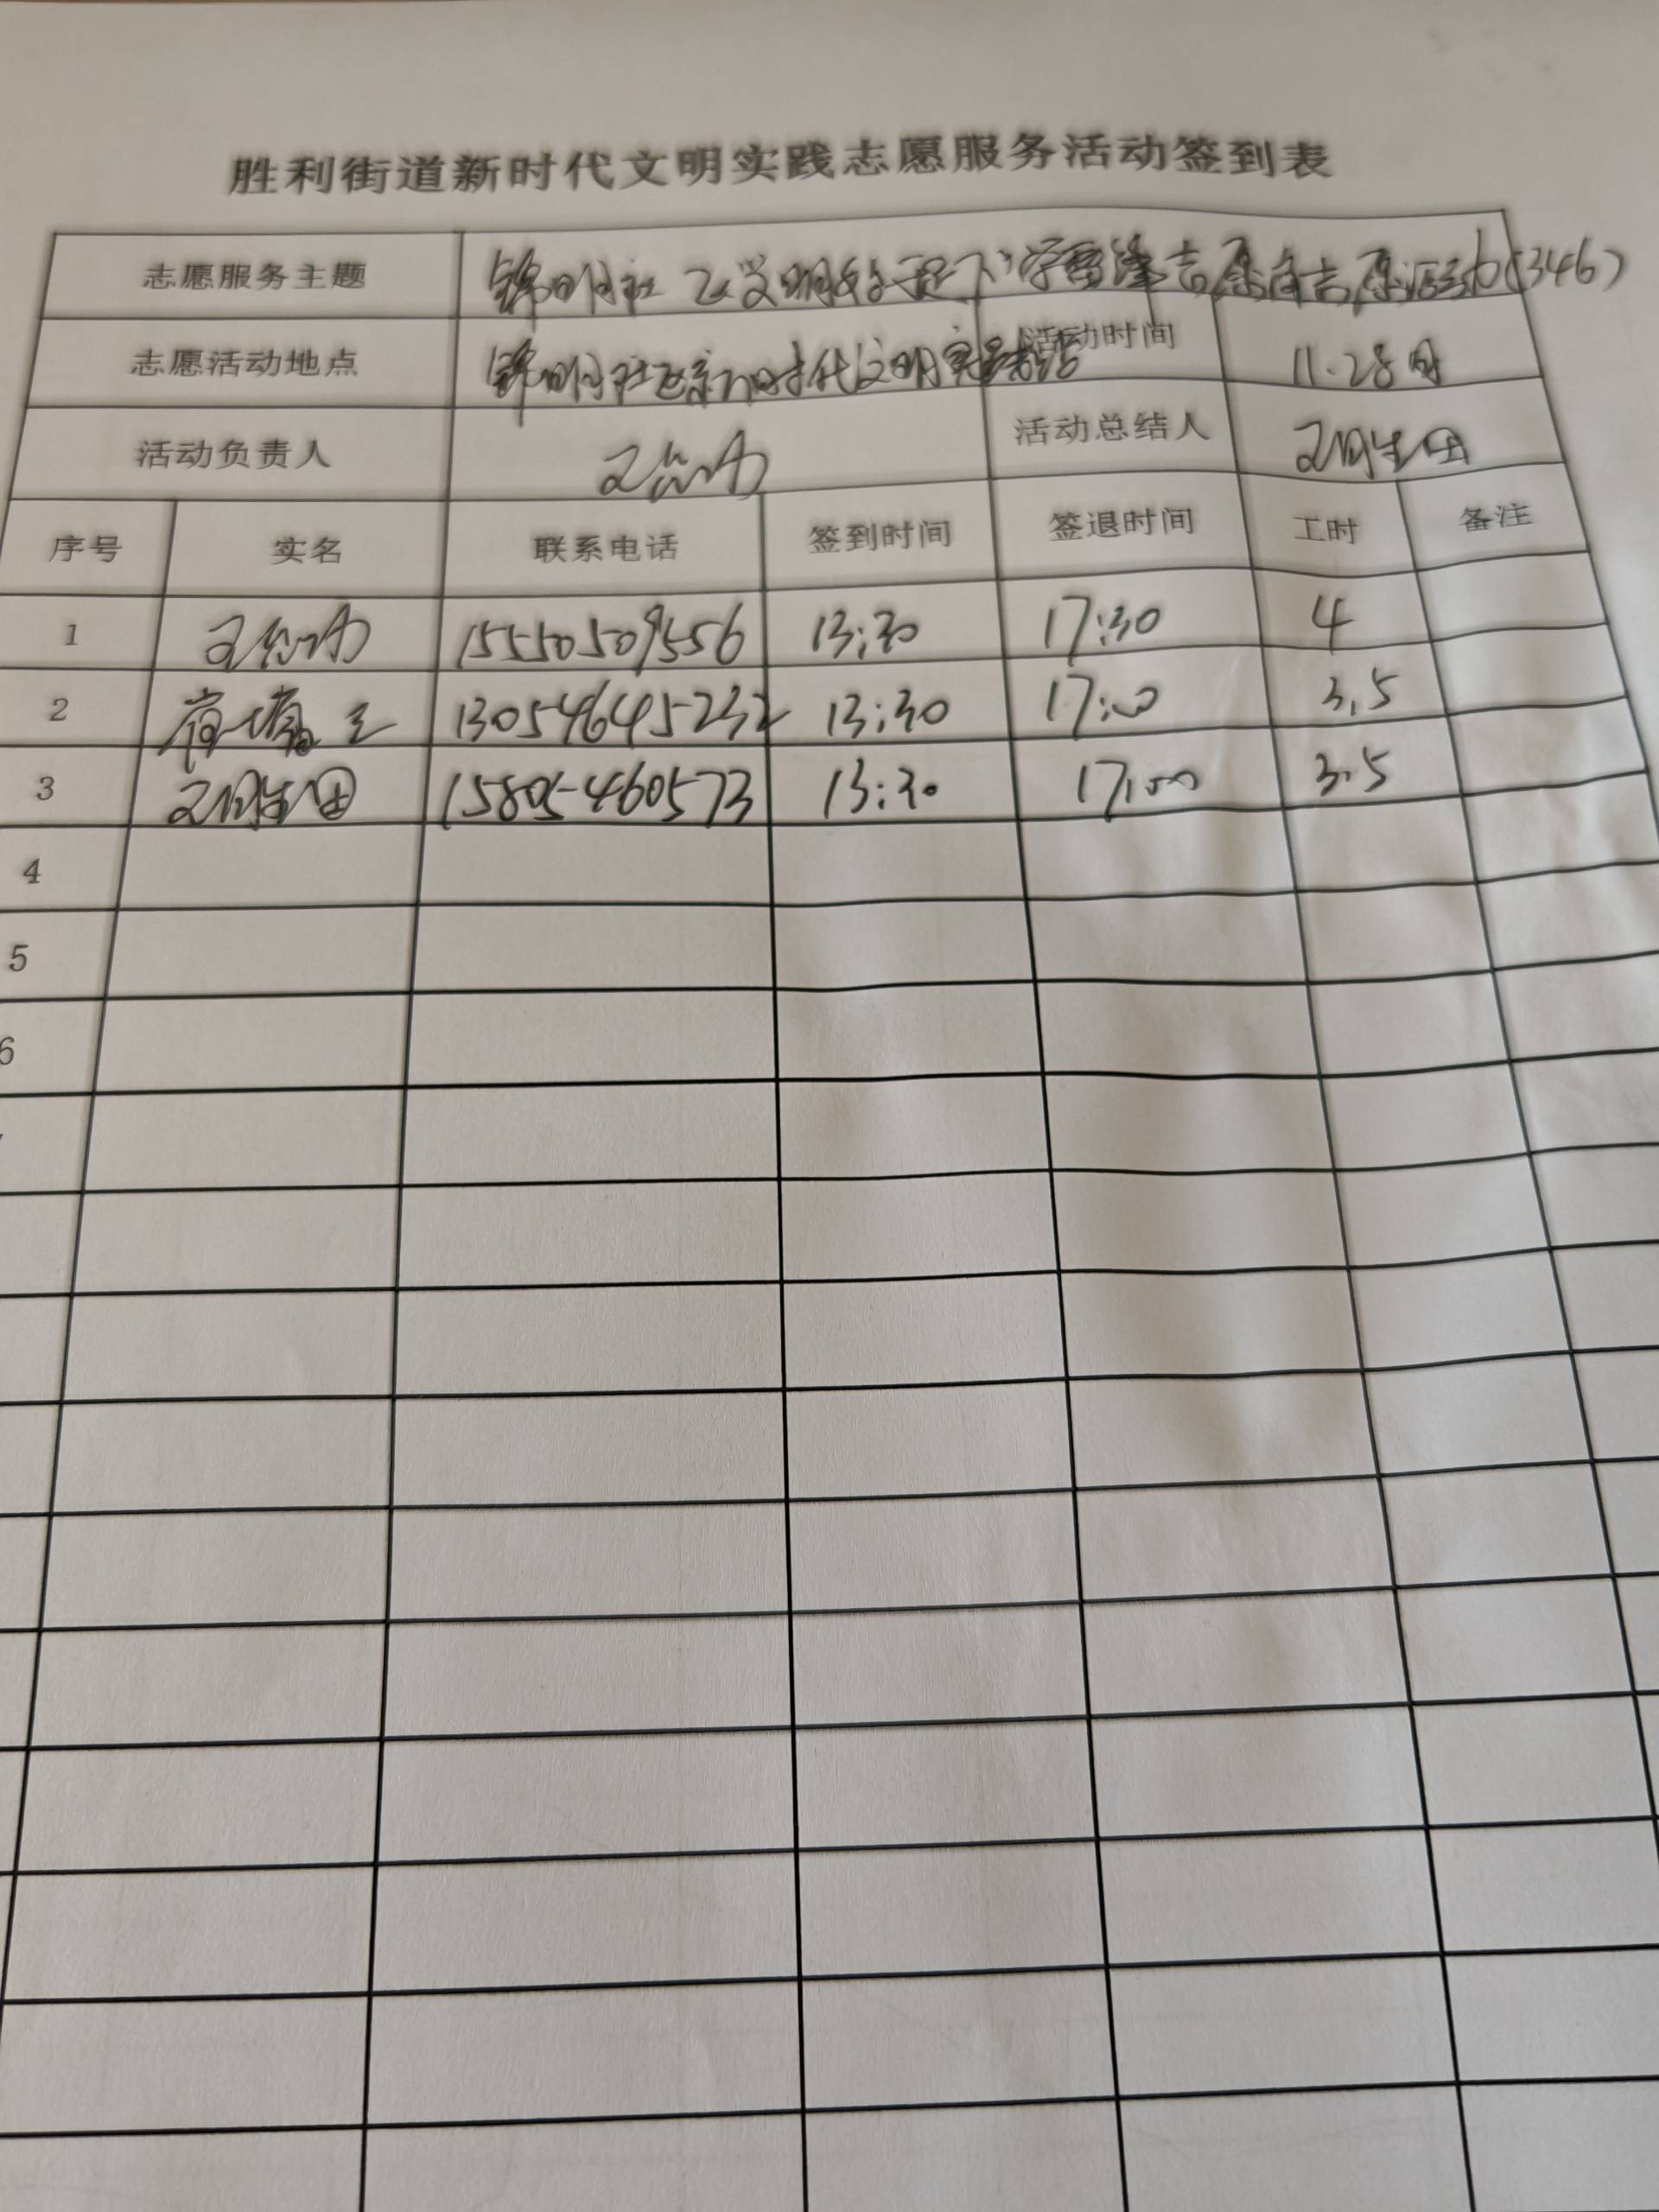 胜利街道新时代文明实践志愿服务活动签到表
志愿服务主题 锦明社区文明 学雷锋志愿者志愿活动(346)
志愿活动地点 锦明社区新时代文明实践站 活动时间 11.28日
活动负责人 活动总结人
序号 实名 联系电话 签到时间 签退时间 工时 备注
1 15550509556 13:30 17:30 4
2 13054645232 13:30 17:00 3.5
3 15805460573 13:30 17:00 3.5
4
5
6